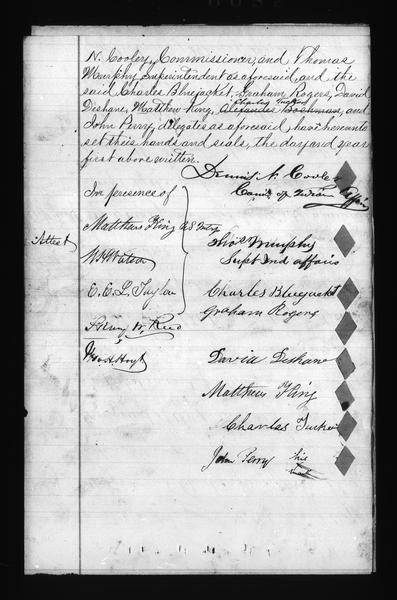 N. Cooley, Commissioner, and Thomas
Murphy Superintendent as aforesaid, and the
said Charles Bluejacket, Graham Rogers, David
Deshane, Matthew King, Charles Tucker, and
John Perry, delegates as aforesaid, have hereunto
set their hands and seals, the day and year
first above written.
Dennis N Cooley
Com'r of Indian Affairs
In presence of
Matthew King U S Intp
Thos Murphy
Attest
Supt Ind affairs
W R Watson
Charles Bluejacket
E. E. L. Taylor
Graham Rogers
W. Reed
David Deshane
Matthew King
Charles Tucker
John Perry his
mark